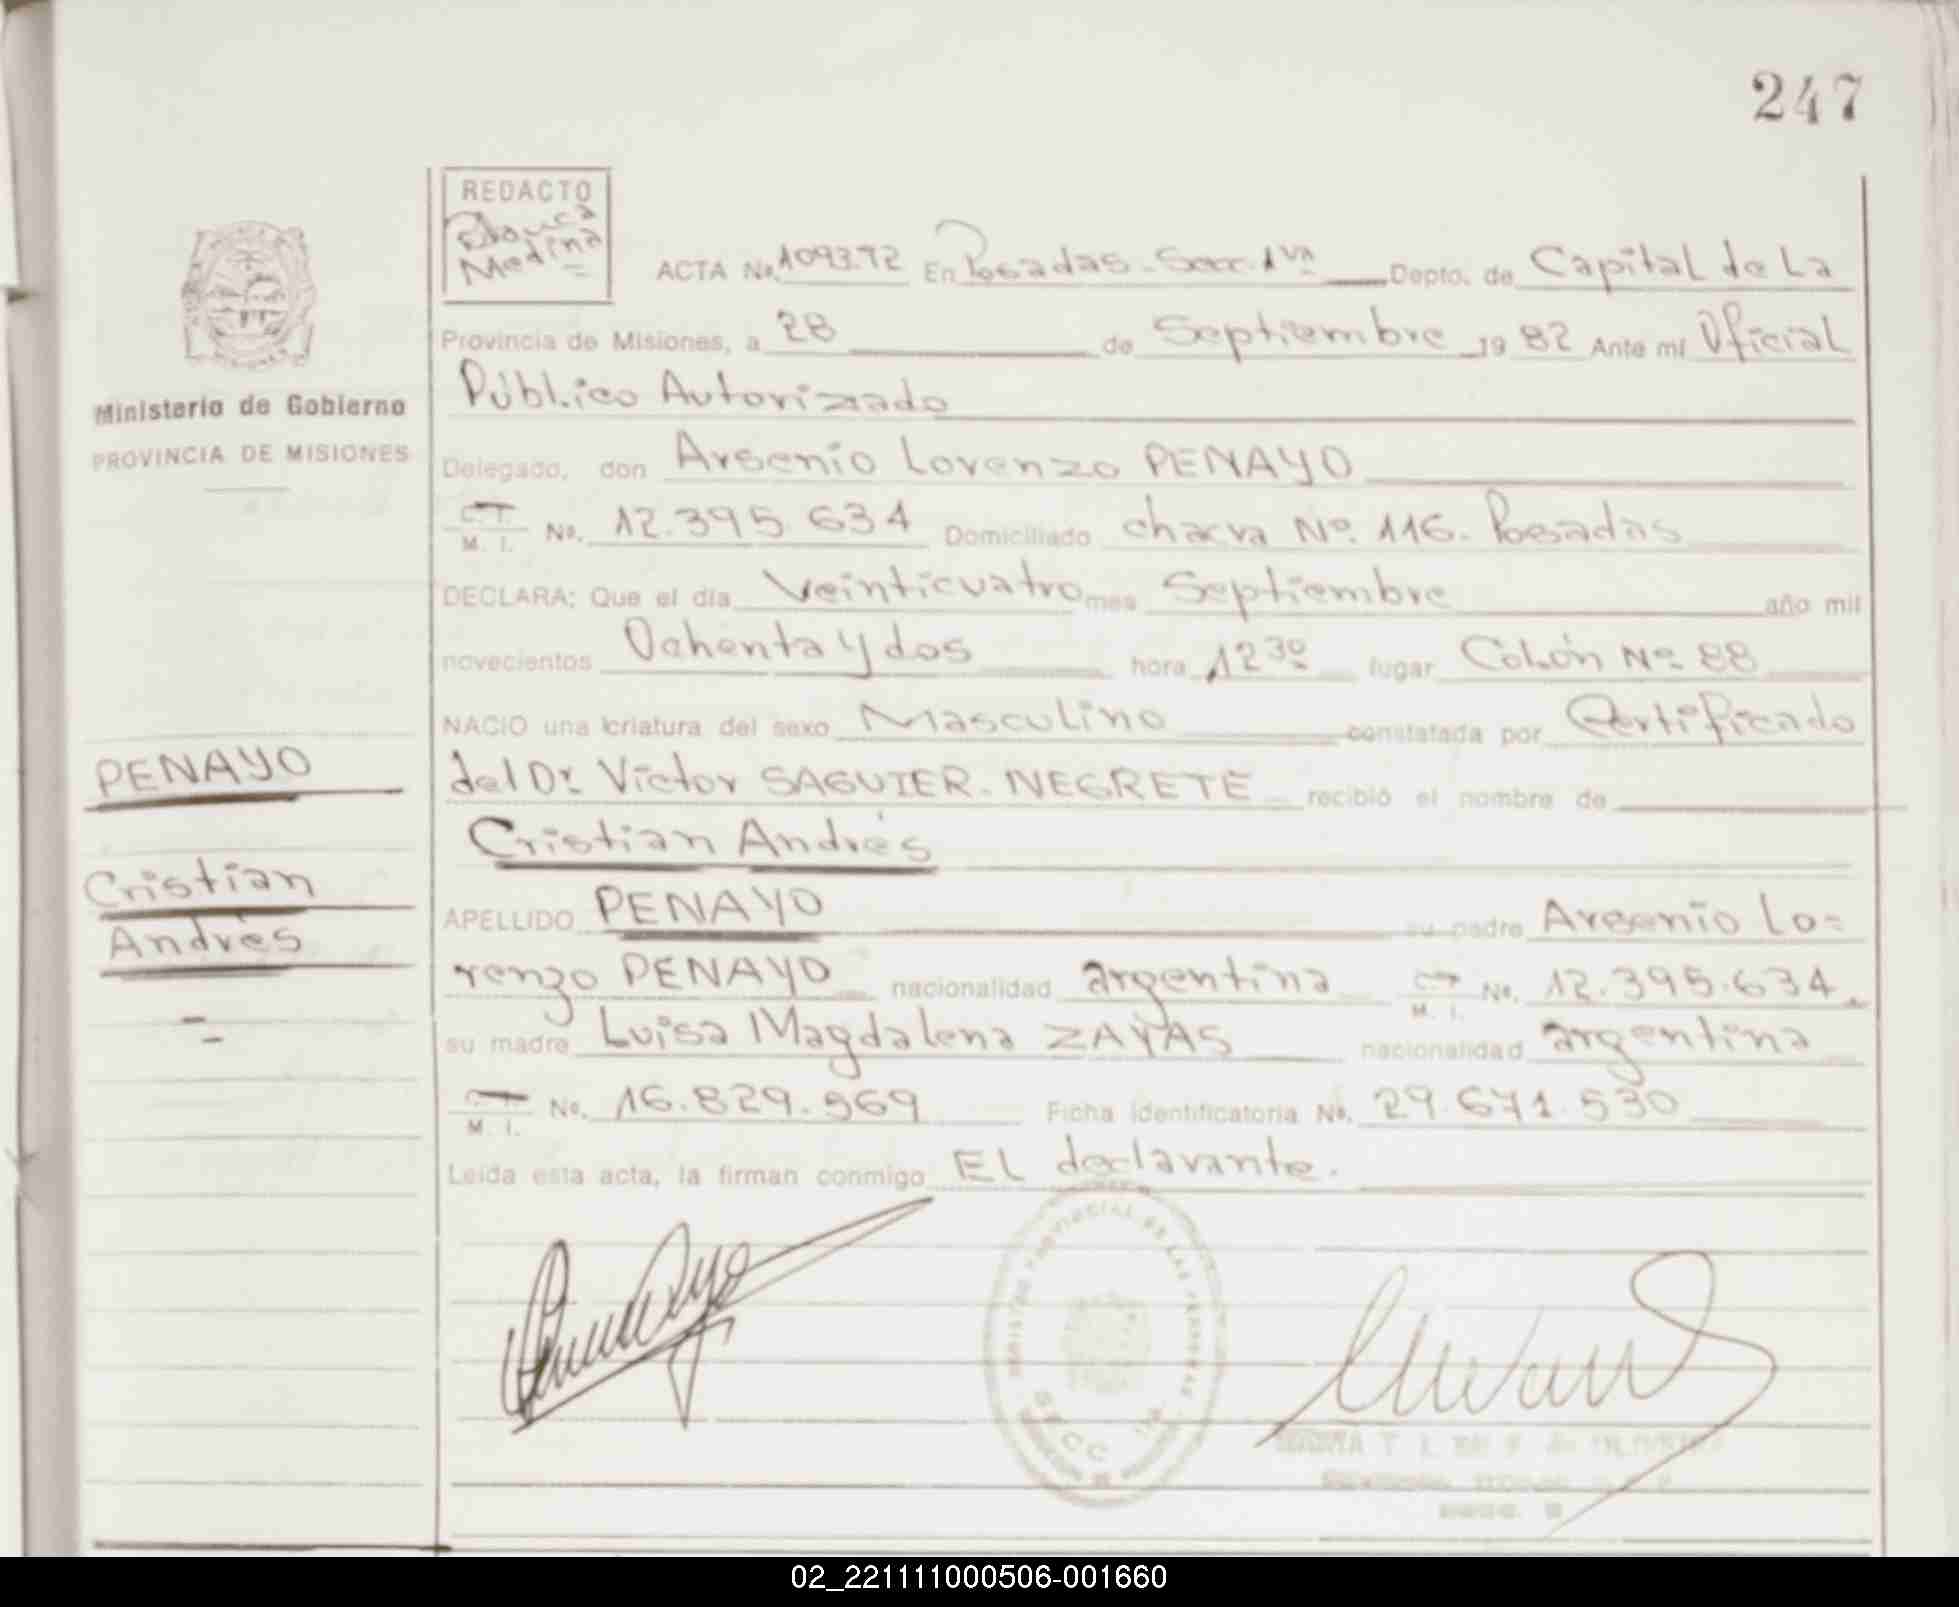 247
REDACTO
Medina
ACTA No. 109372 En Posadas - Secc. 1ra Depto. de Capital de La
Provincia de Misiones, a 28 de Septiembre 19 82 Ante mi Oficial
Público Autorizado
Ministerio de Gobierno
PROVINCIA DE MISIONES
Delegado, don Arsenio Lorenzo PENAYO
C.I. M. I. No. 12.395.634 Domiciliado chacra Nº. 116. Posadas
DECLARA: Que el día Veinticuatro mes Septiembre año mil
novecientos Ochenta y dos hora 12 30 lugar Colón Nº 88
NACIO una criatura del sexo Masculino constatada por Certificado
del Dr. Víctor SAGUIER. NEGRETE recibió el nombre de
Cristian Andrés
PENAYO
Cristian
Andrés
APELLIDO PENAYO su padre Arsenio Lo=
renzo PENAYO nacionalidad argentina C.I. M. I. No. 12.395.634.
su madre Luisa Magdalena ZAYAS nacionalidad argentina
C.I. M. I. No. 16.829.969 Ficha identificatoria No. 29.671.530
Leída esta acta, la firman conmigo EL declarante.
SECC 1ra
02_221111000506-001660